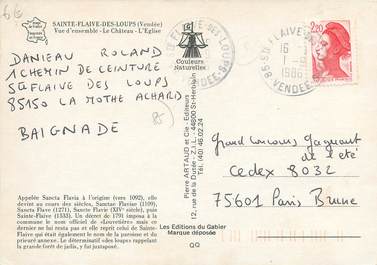 6€
SAINTE-FLAIVE-DES-LOUPS (Vendée)
Vue d'ensemble - Le Château - L'Eglise
DANIEAU ROLAND
1 CHEMIN DE CEINTURE
STE FLAIVE DES LOUPS
85150 LA MOTHE ACHARD
BAIGNADE
8)
Appelée Sancta Flavia à l'origine (vers 1092), elle
devint au cours des siècles, Sanctus Flavius (1109),
Sancta Flave (1271), Sancta Flavia (XIVe siècle), puis
Sainte-Flaive (1533). Un décret de 1791 imposa à la
commune le nom officiel de «Louvetière» mais ce
dernier ne lui resta pas et elle reprit celui de Sainte-
Flaive qui était également le nom de la paroisse et du
prieuré annexe. Le déterminatif «des loups» rappelant
la grande forêt de jadis, fut justaxposé.
Couleurs
Naturelles
Pierre ARTAUD et Cie - Editeurs
12, rue de la Dutée - Z.I.L. - 44800 St-Herblain
Tél. (40) 46.02.24
Les Editions du Gabier
Marque déposée
QQ
STE FLAIVE DES LOUPS
VENDEE
16
1986
2,20
grand concours gagnant
de l'été
Cedex 8032
75601 Paris Brune